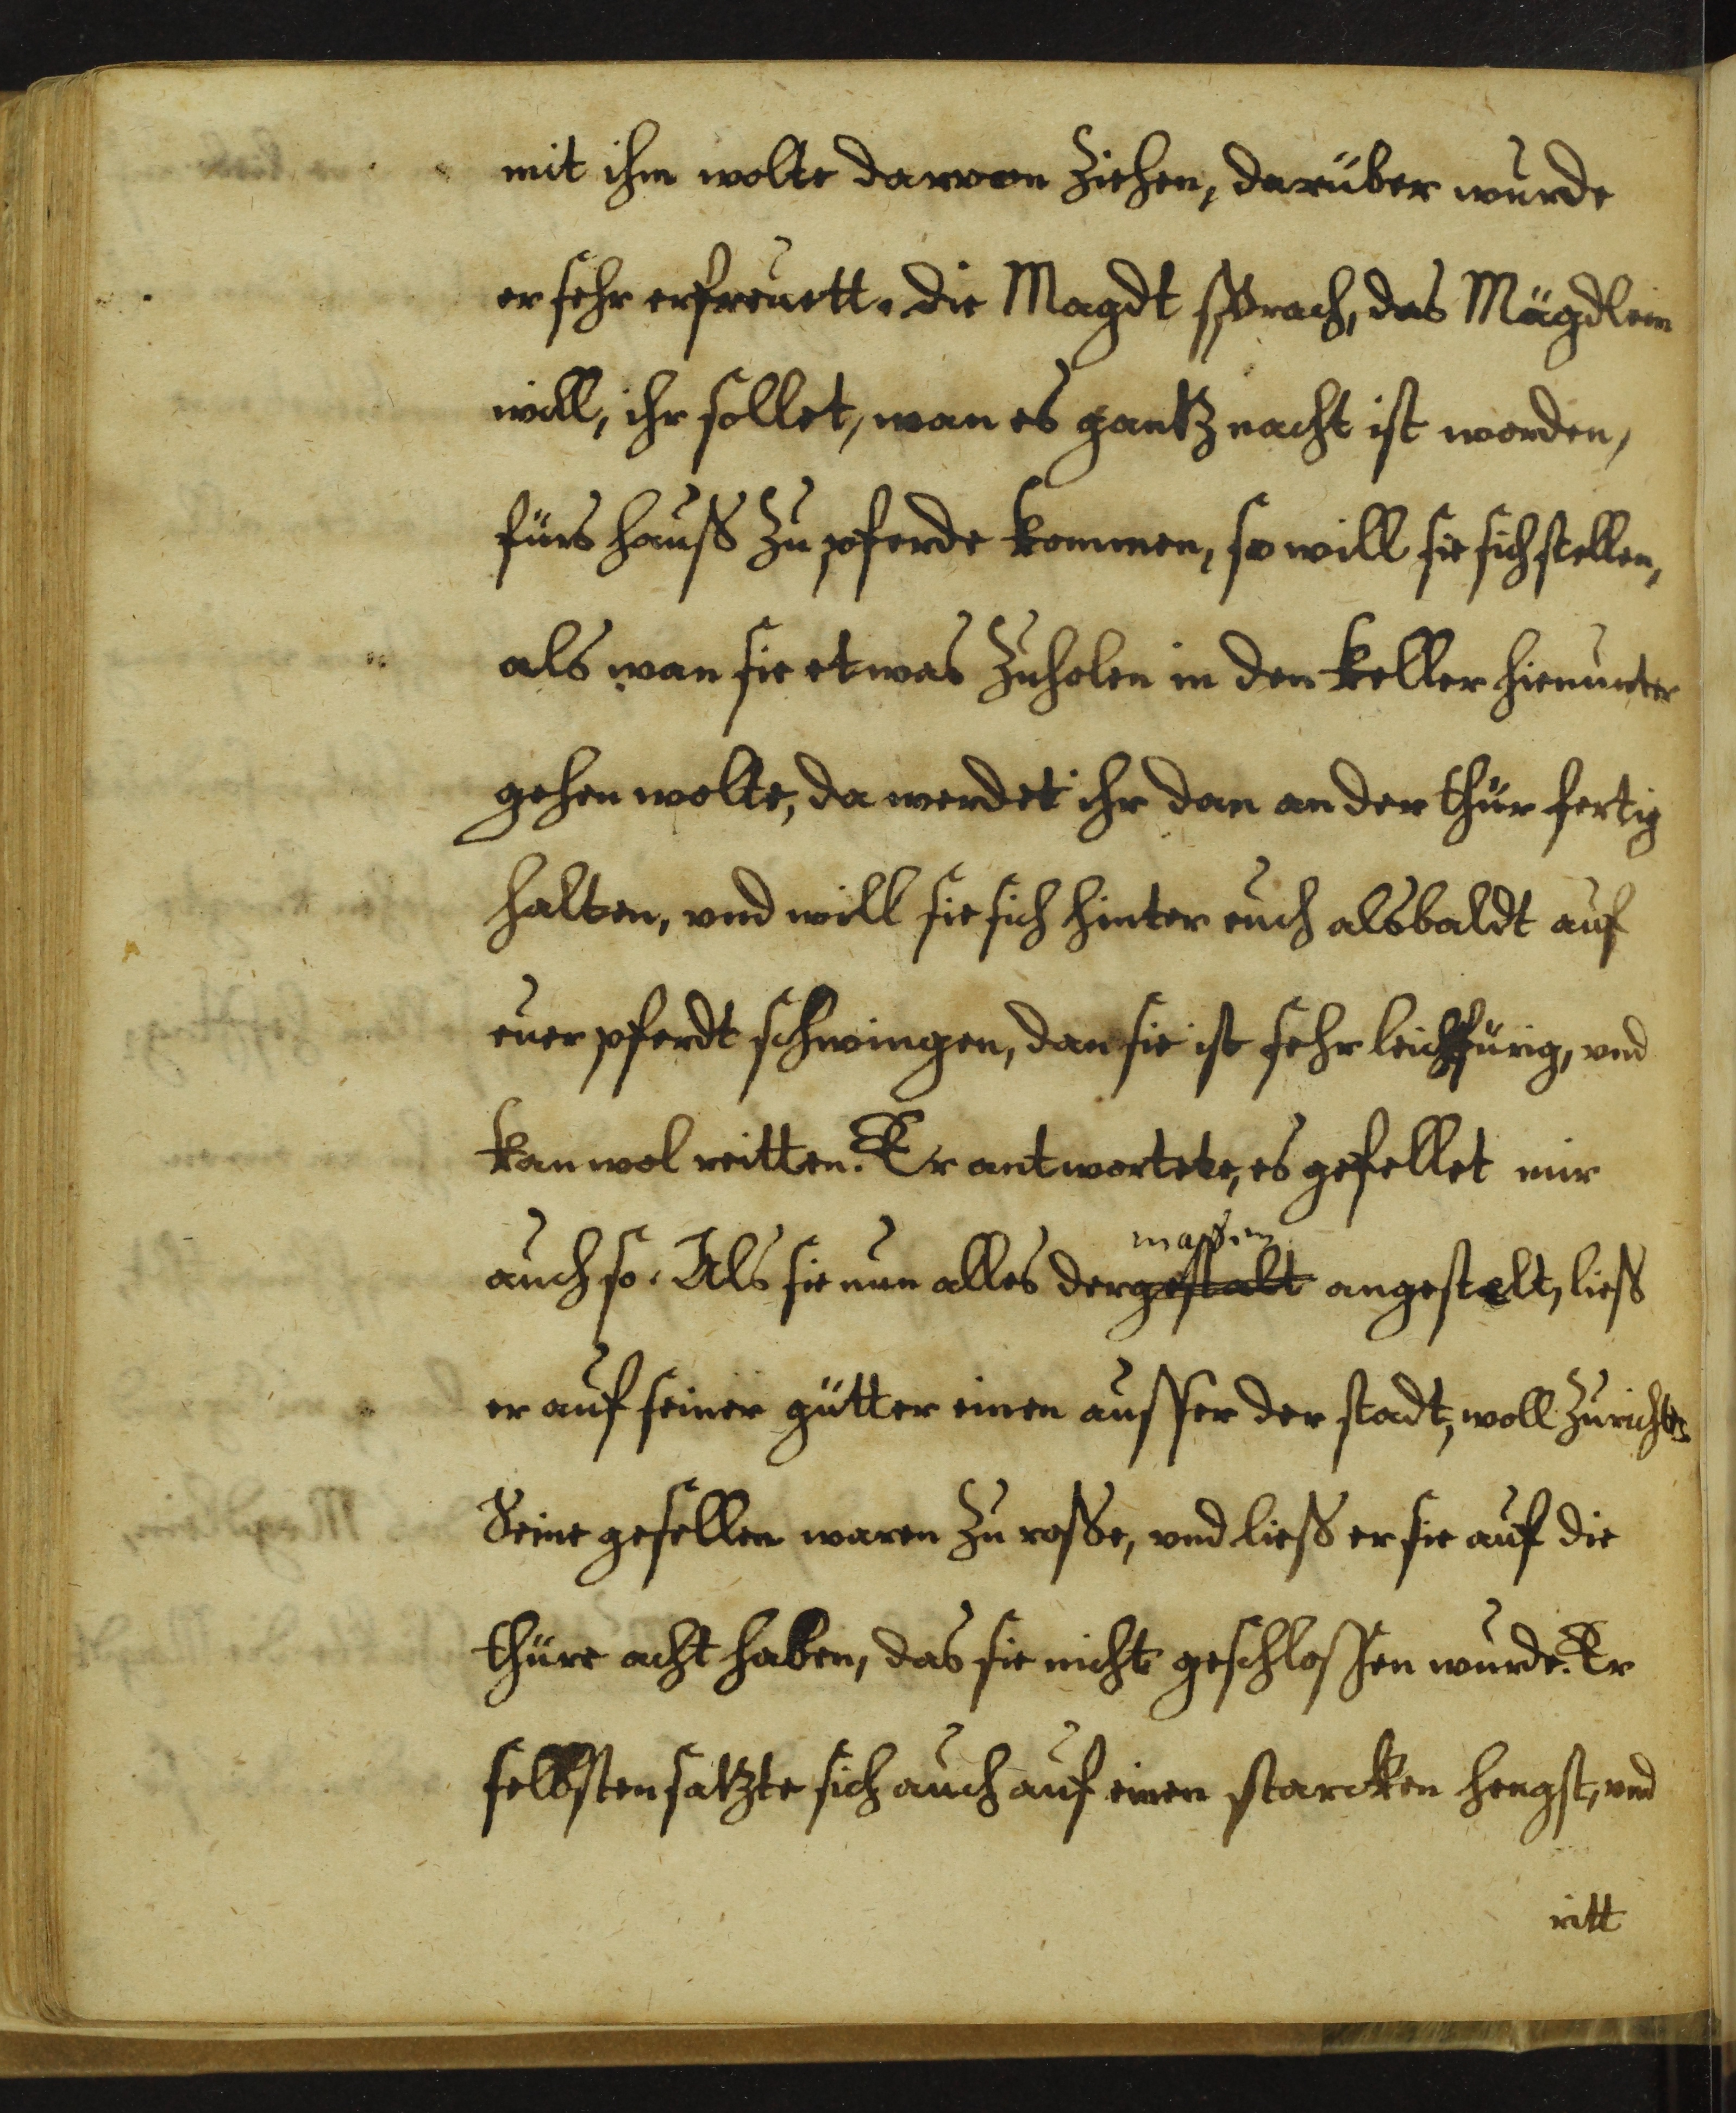 mit ihm wolte darvon ziehen, darüber wurde
er sehr erfreuett. die Magdt sprach, das Mägdlein
will, ihr sollet, wan es gantz nacht ist worden,
fürs hauß zu pferde kommen, so will sie sich stellen,
als wan sie etwas zuholen in den keller hienunter
gehen wolte, da werdet ihr dan an der thür fertig
halten, vnd will sie sich hinter euch alsbaldt auf
euer pferdt schwingen, dan sie ist sehr vnd
kan wol reitten. Er antwortete, es gefellet mir
massen
auch so. Als sie nun alles dergestalt angestelt, ließ
er auf seiner gütter einen ausser der stadt, woll zurichten.
Seine gesellen waren zu rosse, vnd ließ er sie auf die
thüre acht haben, das sie nicht geschlossen wurde. Er
selbsten satzte sich auch auf einen starcken hengst, vnd
ritt